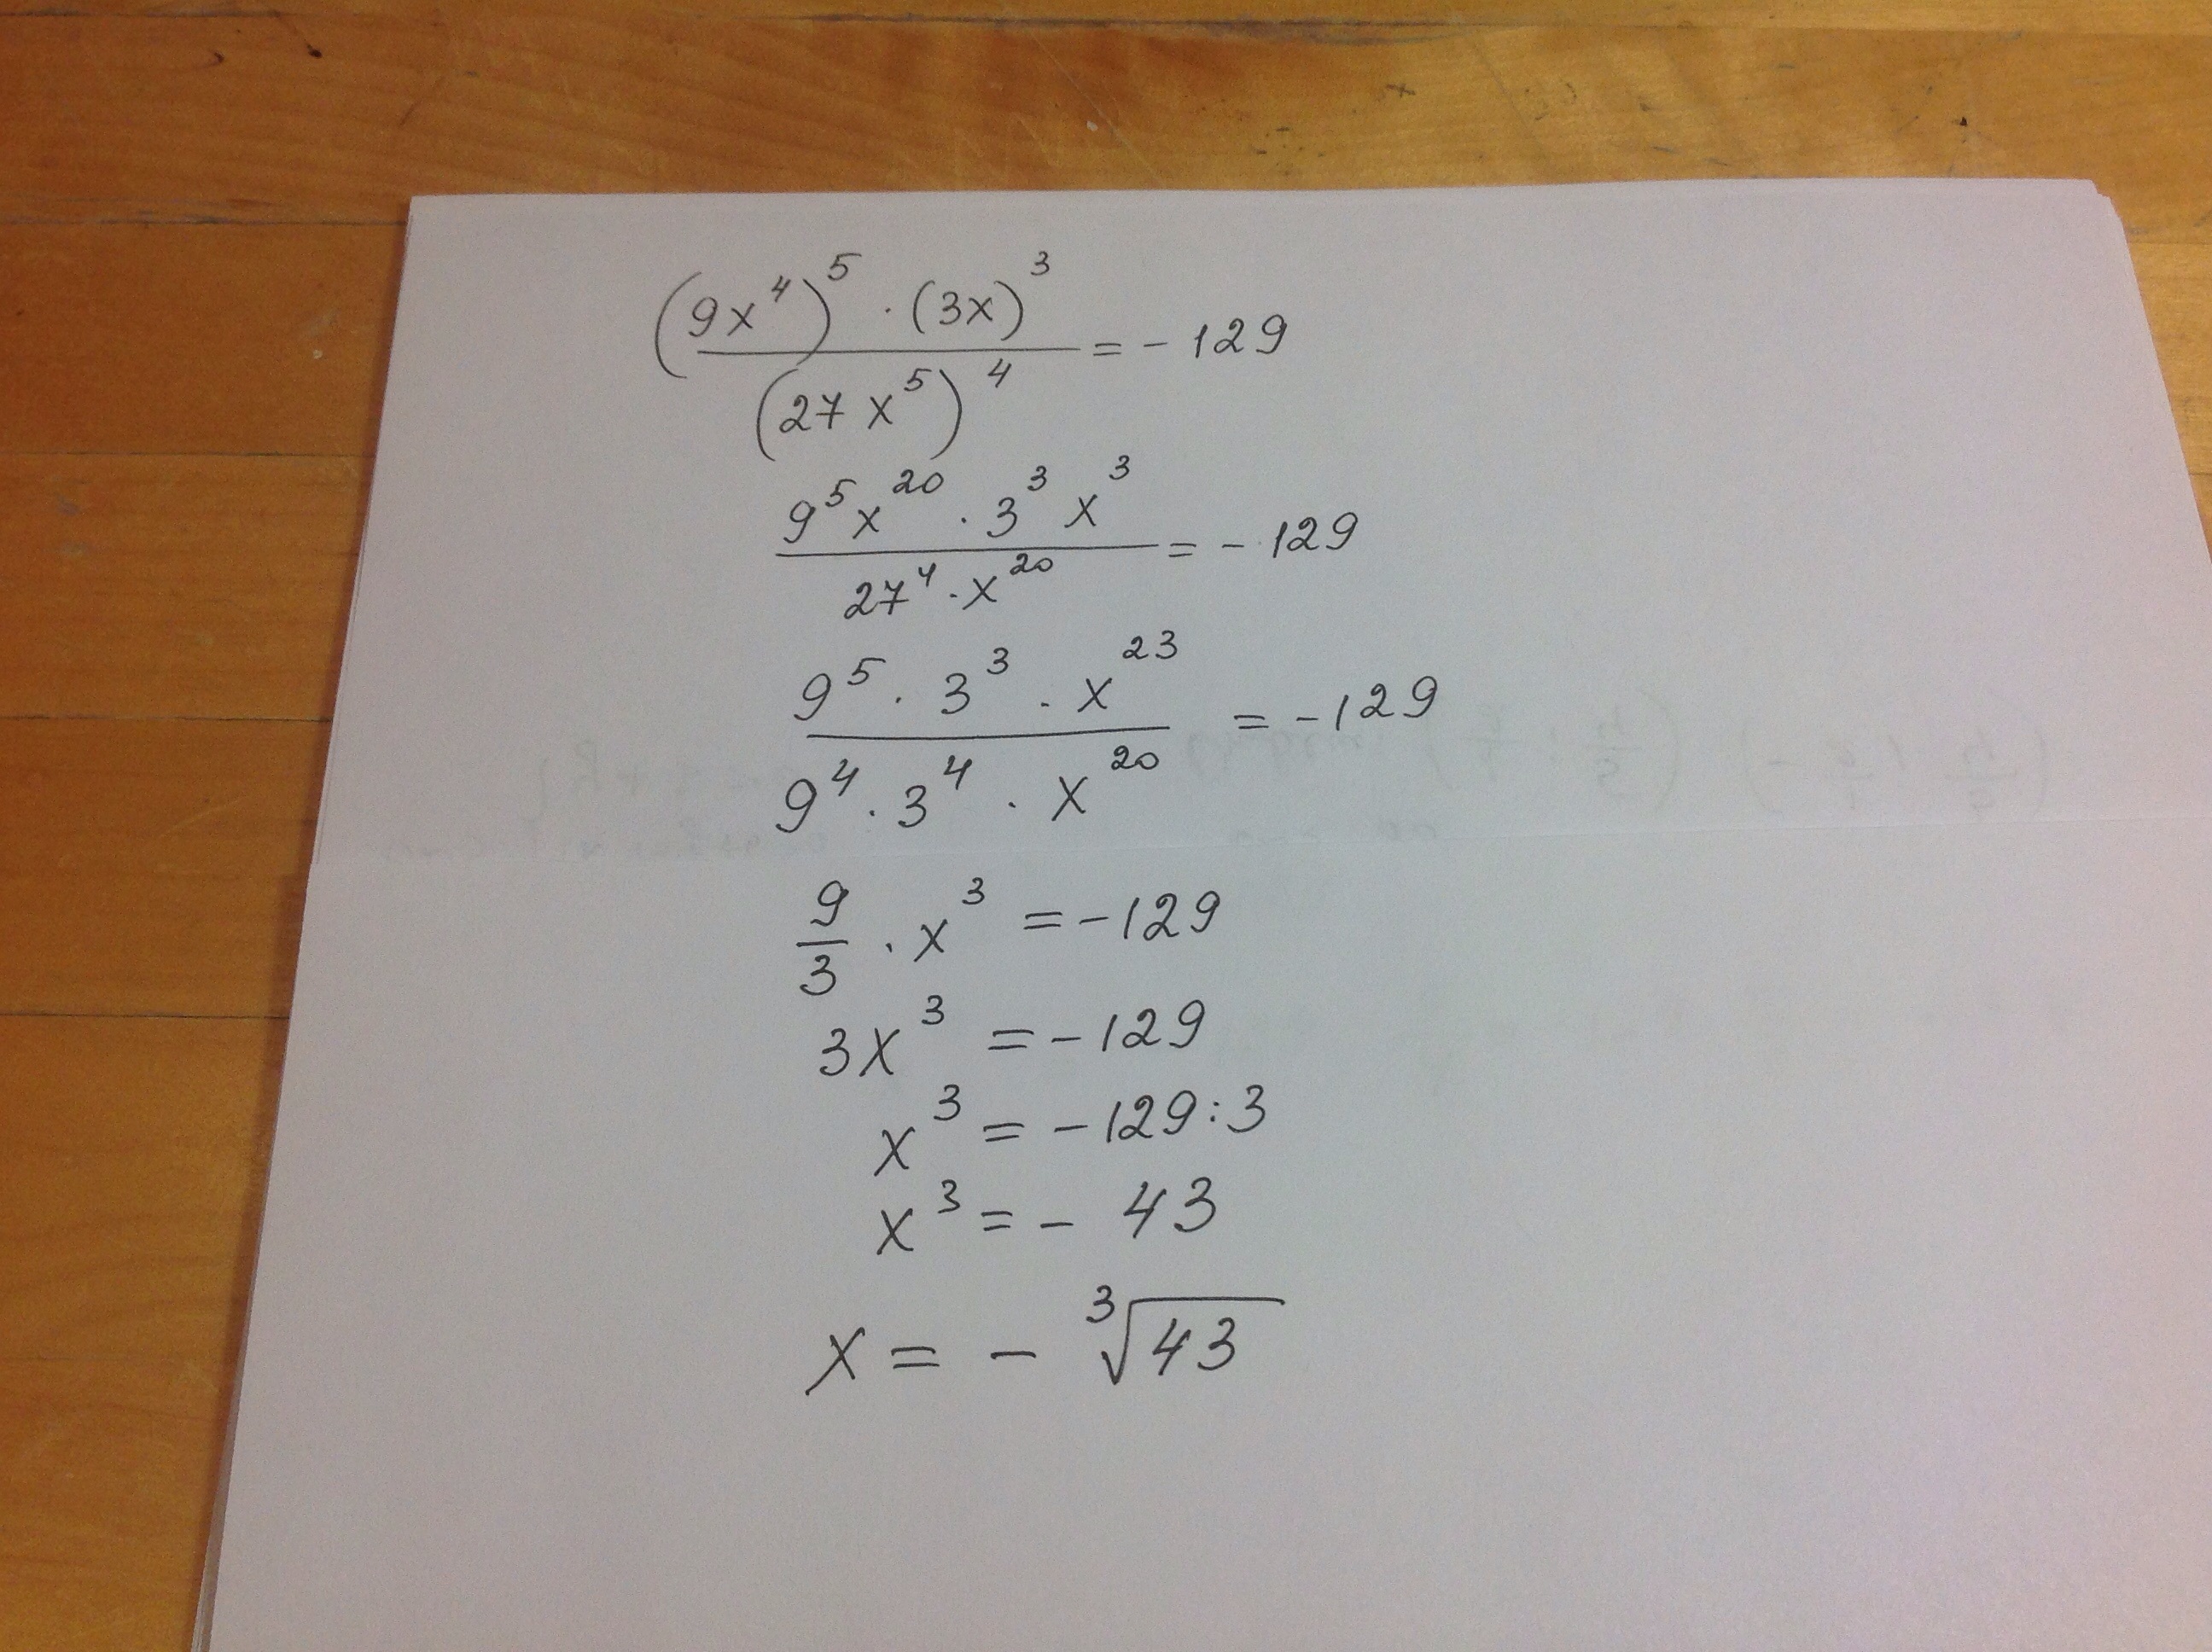 (9x⁴)⁵ · (3x)³ / (27x⁵)⁴ = - 129
9⁵x²⁰ · 3³x³ / 27⁴ · x²⁰ = - 129
9⁵ · 3³ · x²³ / 9⁴ · 3⁴ · x²⁰ = -129
9/3 · x³ = -129
3x³ = -129
x³ = -129:3
x³ = - 43
x = - ³√43